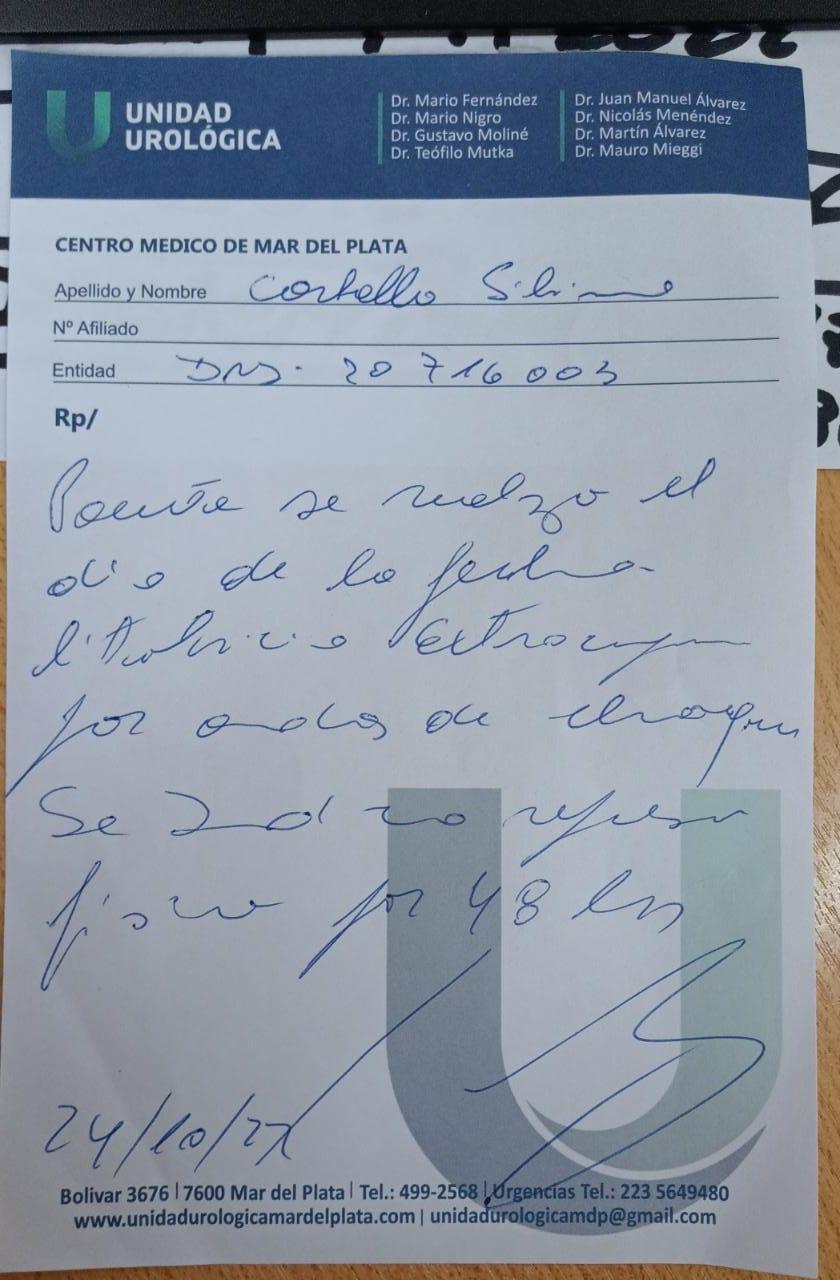 UNIDAD
UROLÓGICA
Dr. Mario Fernández
Dr. Mario Nigro
Dr. Gustavo Moliné
Dr. Teófilo Mutka
Dr. Juan Manuel Álvarez
Dr. Nicolás Menéndez
Dr. Martín Álvarez
Dr. Mauro Mieggi
CENTRO MEDICO DE MAR DEL PLATA
Apellido y Nombre
Nº Afiliado
Entidad DNI. 20 716 003
Rp/
Paciente se realizo el
dia de la fecha
litotricia Extracorporea
por ondas de choque
Se indica reposo
fisico por 48 hs
24/10/
Bolivar 3676 | 7600 Mar del Plata | Tel.: 499-2568 | Urgencias Tel.: 223 5649480
www.unidadurologicamardelplata.com | unidadurologicamdp@gmail.com